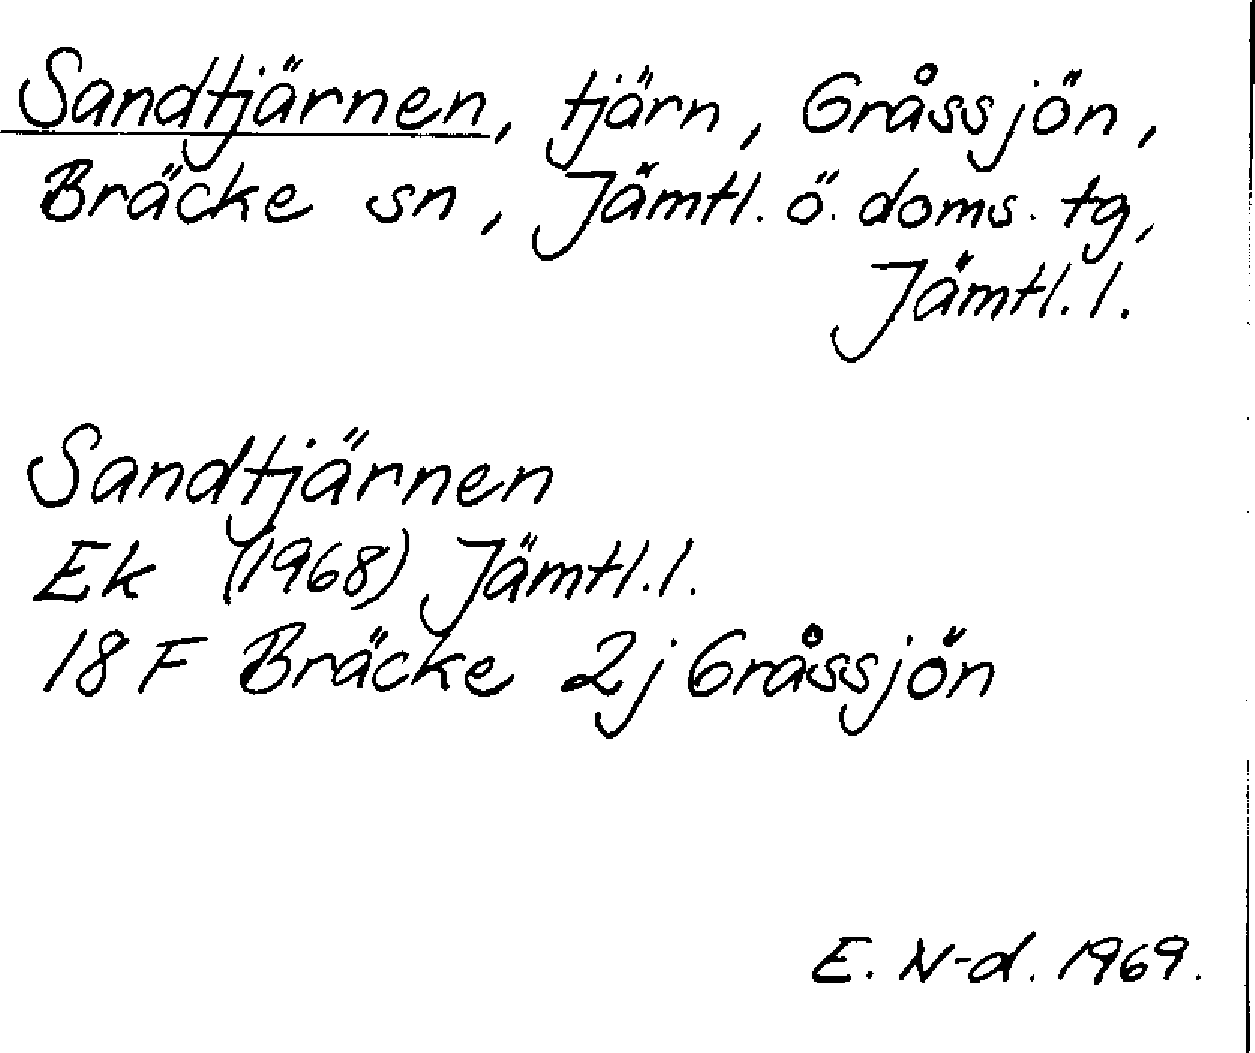 Sandtjärnen, tjärn, Gråssjön,
Bräcke sn, Jämtl. ö. doms. tg,
Jämtl. l.
Sandtjärnen
Ek (1968) Jämtl. l.
18 F Bräcke 2j Gråssjön
E. N-d. 1969.